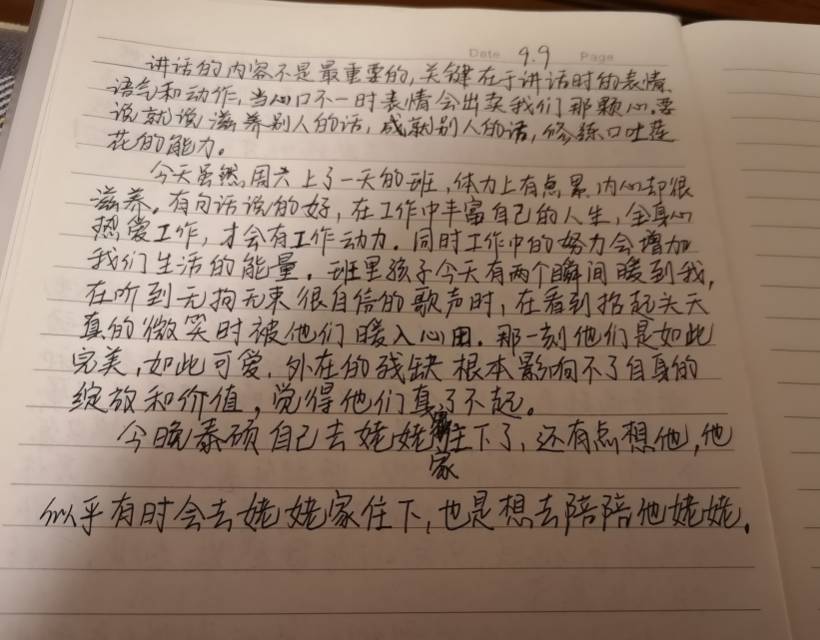 Date 9.9 Page
讲话的内容不是最重要的,关键在于讲话时的表情、
语气和动作,当心口不一时表情会出卖我们那颗心。要
说就说滋养别人的话,成就别人的话,修练口吐莲
花的能力。
今天虽然周六上了一天的班,体力上有点累,内心却很
滋养。有句话说的好,在工作中丰富自己的人生,全身心
热爱工作,才会有工作动力。同时工作中的努力会增加
我们生活的能量。班里孩子今天有两个瞬间暖到我,
在听到无拘无束很自信的歌声时,在看到抬起头天
真的微笑时被他们暖入心田。那一刻他们是如此
完美,如此可爱,外在的残缺根本影响不了自身的
绽放和价值,觉得他们真了不起。
今晚泰硕自己去姥姥住下了,还有点想他,他
家
似乎有时会去姥姥家住下,也是想去陪陪他姥姥。